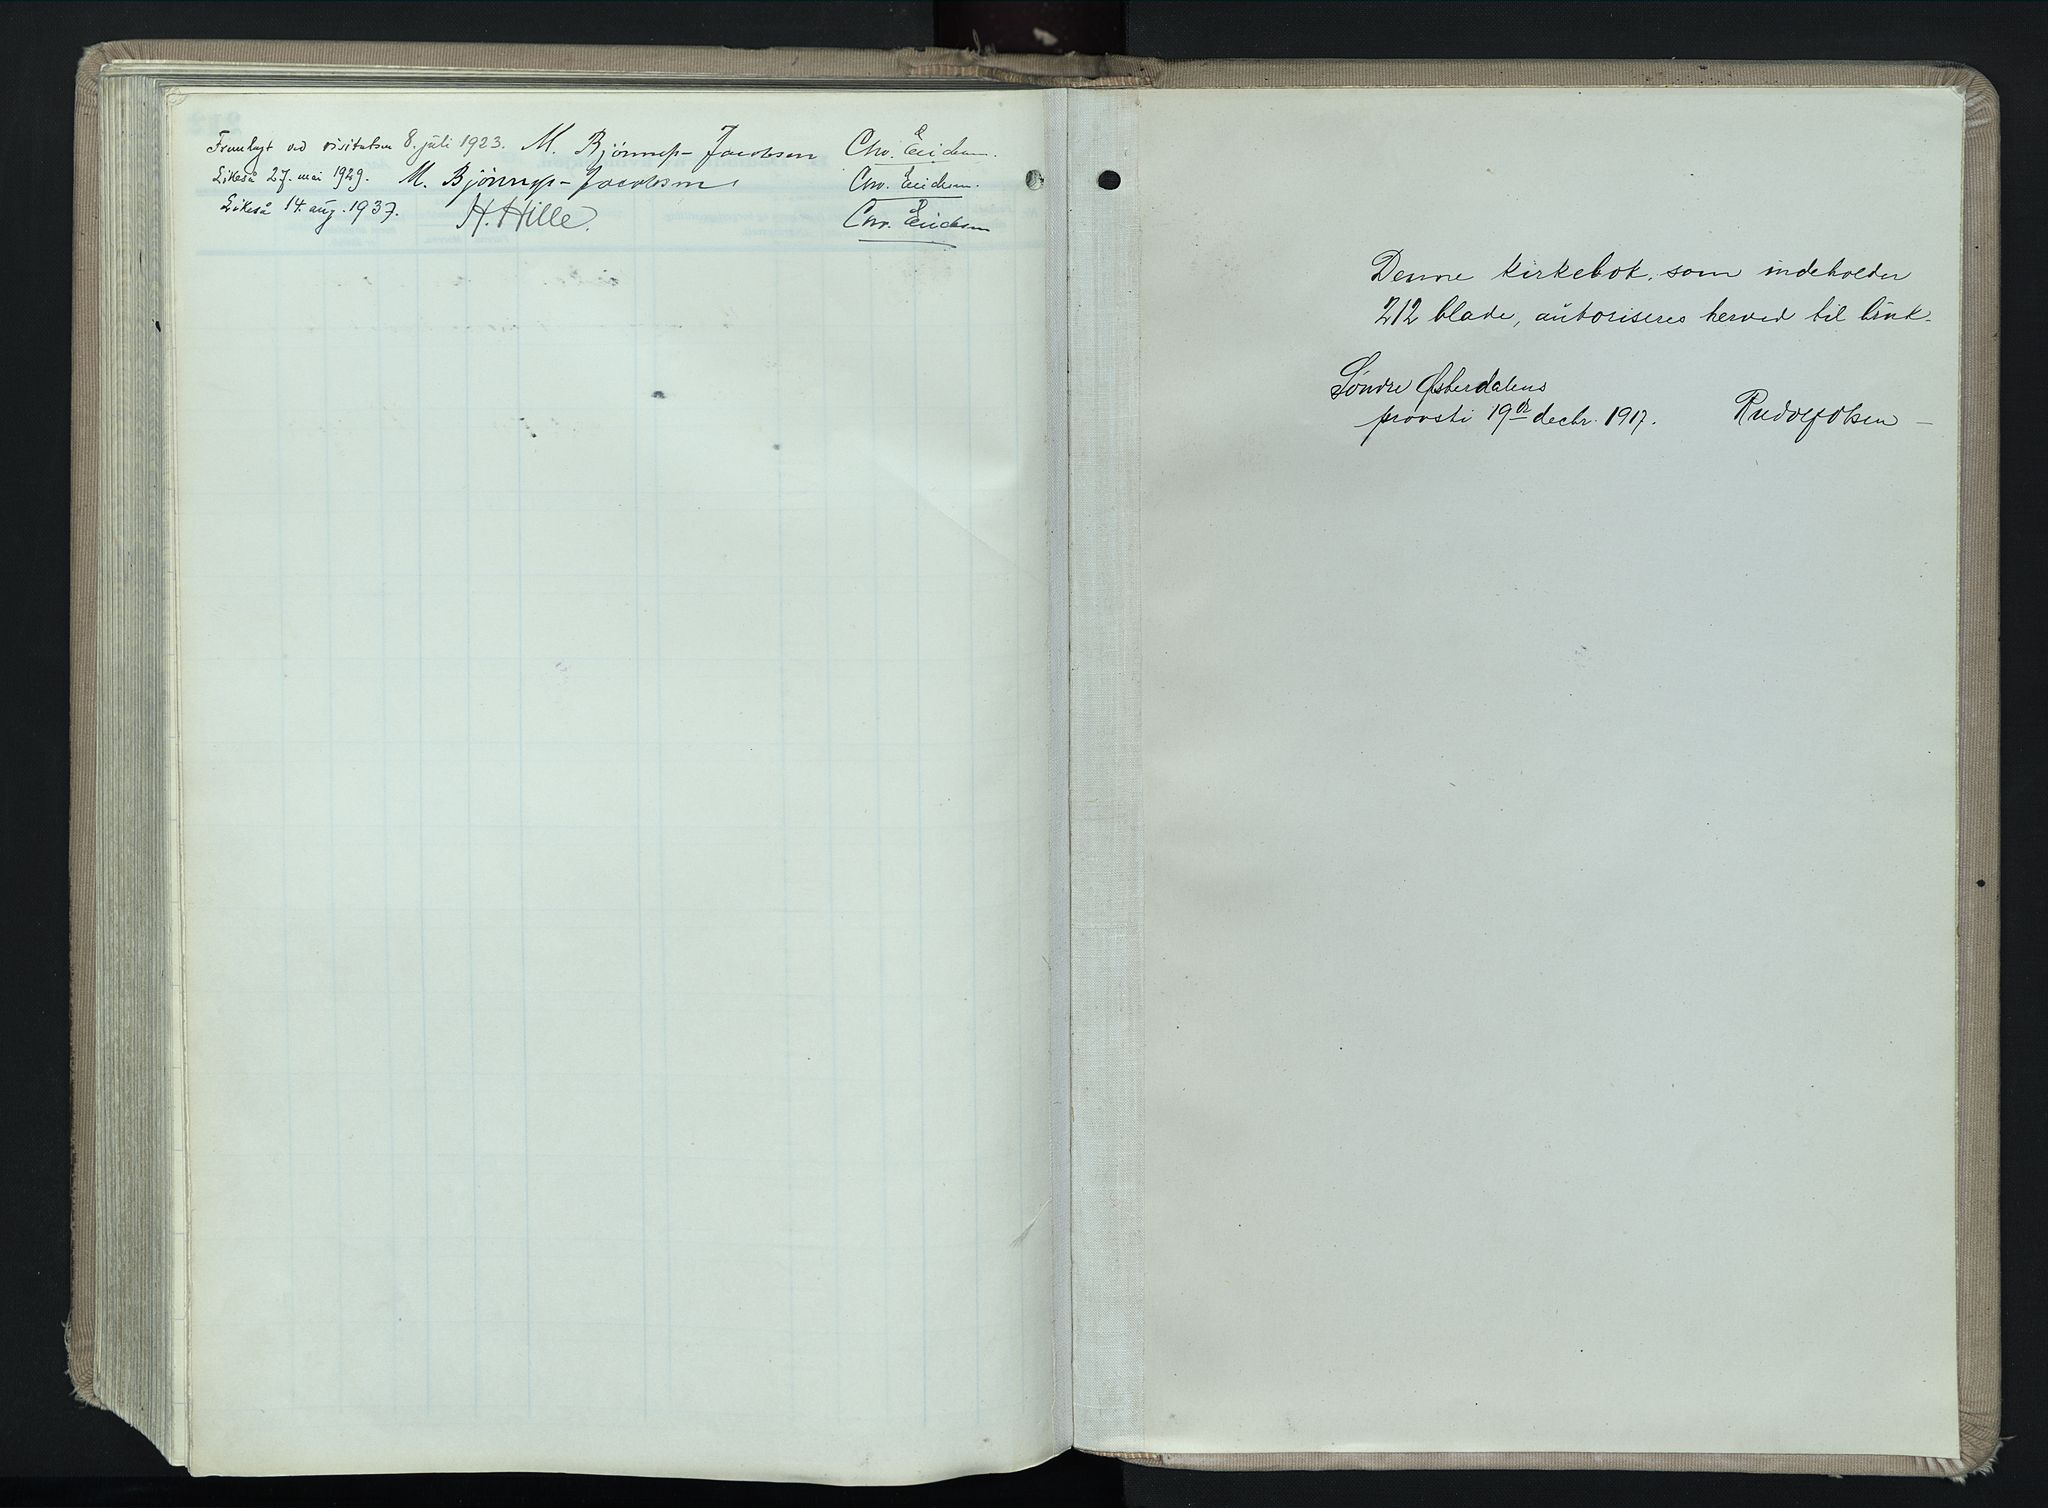 Fremlagt ved visitatsen 8. juli 1923. M. Bjønness-Jacobsen Chr. Erichsen.
Likeså 27. mai 1929. M. Bjønness-Jacobsen Chr. Erichsen.
Likeså 14. aug. 1937. H. Hille. Chr. Erichsen
Denne kirkebok, som indeholder
212 blade, autoriseres herved til bruk.
Søndre Østerdalens
provsti 19de decbr. 1917. Rudolf Olsen